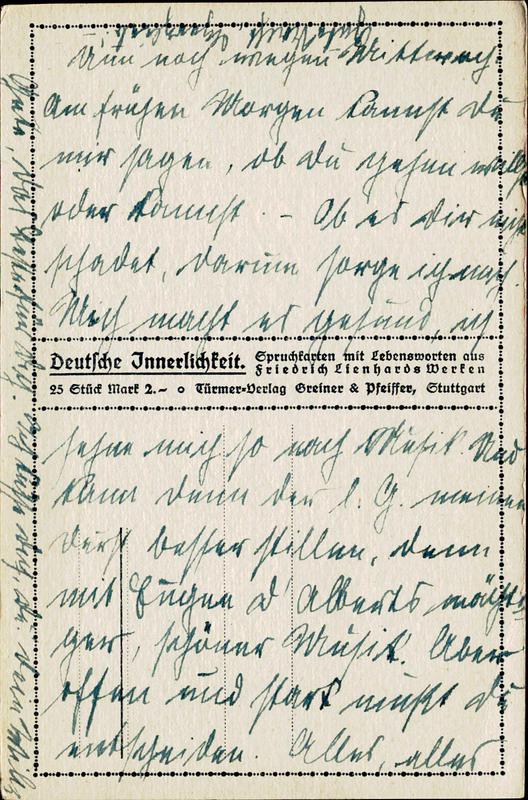 Nun noch wegen Mittwoch.
Am frühen Morgen kannst du
mir sagen, ob du gehen willst
oder kannst. – Ob es dir nicht
schadet, darum sorge ich mich.
Mich macht es gesund, ich
Deutsche Innerlichkeit. Spruchkarten mit Lebensworten aus
Friedrich Lienhards Werken
25 Stück Mark 2.– o Türmer-Verlag Greiner & Pfeiffer, Stuttgart
sehne mich so nach Musik. Und
kann denn der l. G. meinen
Durst besser stillen, denn
mit Eugen d'Alberts mächti-
ger, schöner Musik. Aber
offen und stark mußt du
entscheiden. Alles, alles